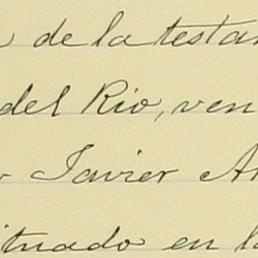 de la testa
del Rio, ven
Javier A
ituado en l